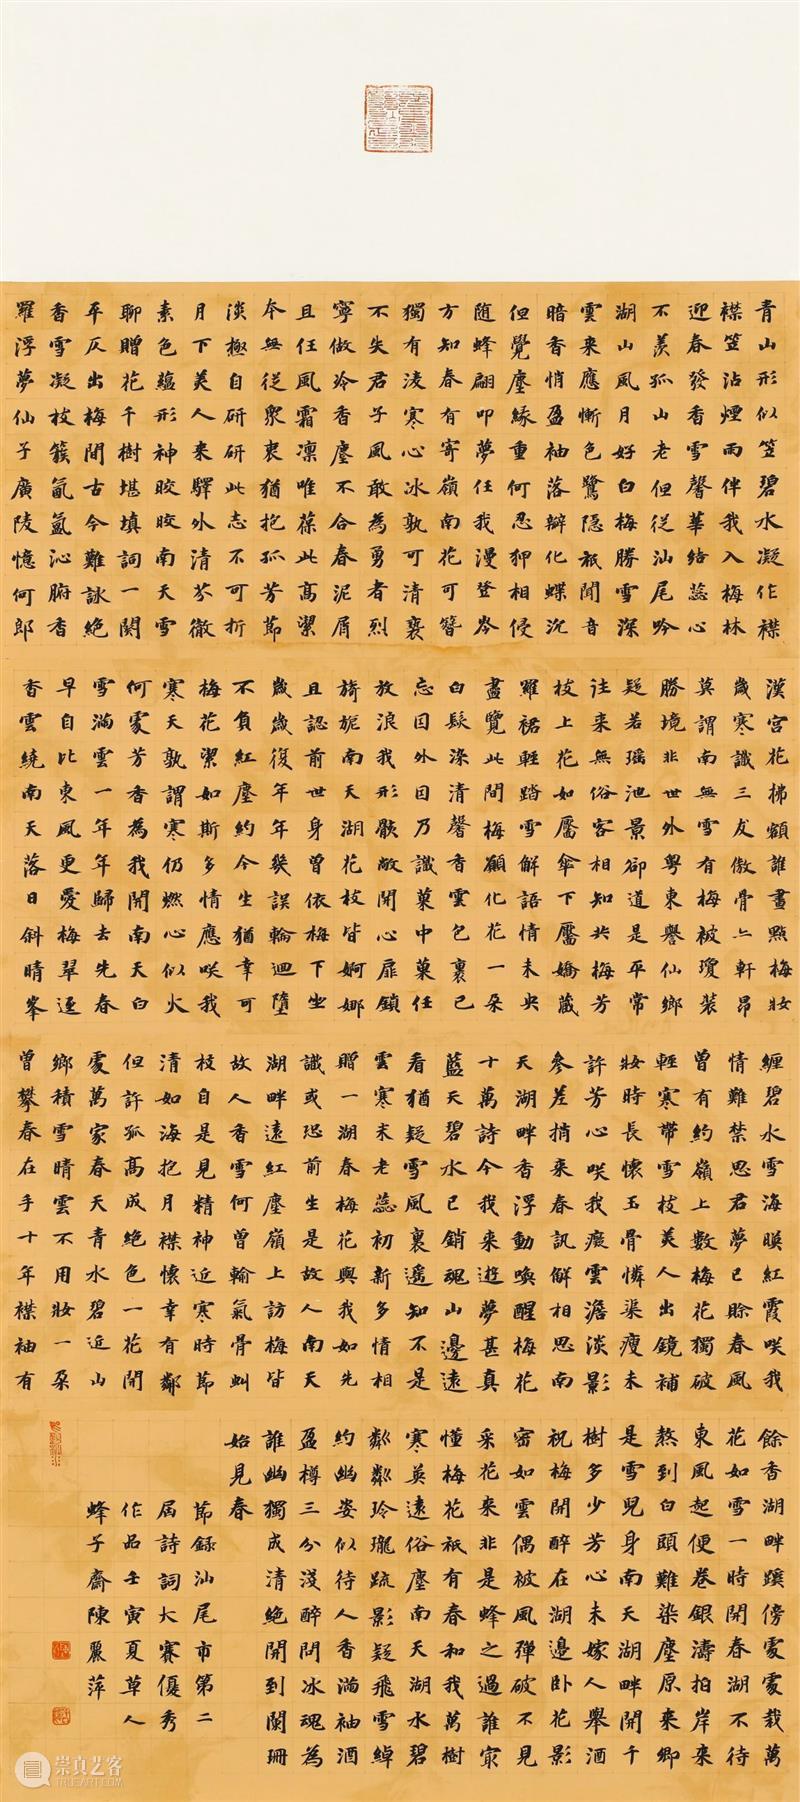 青山形似笠碧水凝作襟
襟笠沾煙雨伴我入梅林
迎春發香雪馨華結蕊心
不羨孤山老但從汕尾吟
湖山風月好白梅勝雪深
雲来應慚色鷺隱祇聞音
暗香悄盈袖落瓣化蝶沉
但覺塵緣重何忍狎相侵
随蜂翩叩夢任我漫登岑
方知春有寄嶺南花可簪
獨有淩寒心冰孰可清裹
不失君子風敢為勇者烈
寧做冷香塵不合春泥屑
且任風霜凛唯葆此高潔
本無從衆衷猶抱孤芳節
淡極自研研此志不可折
月下美人来驛外清芬徹
素色蘊形神皎皎南天雪
聊贈花千樹堪填詞一闋
平仄出梅間古今難詠絕
香雪凝枝簇氤氲沁腑香
羅浮夢仙子廣陵憶何郎
漢宮花拂額誰畫點梅妝
歲寒識三友傲骨軒昂
莫謂南無雪有梅被瓊裝
勝境非世外粤東譽仙鄉
疑若瑶池景卻道是平常
往来無俗客相知共梅芳
枝上花如靨傘下靨嬌藏
羅裙輕踏雪解語情未央
盡覽此間梅願化花一朵
白髮染清馨香雲包裹己
忘因外因乃識菓中菓任
放浪我形骸敞開心扉鎖
旖旎南天湖花枝皆婀娜
且認前世身曾依梅下坐
歲歲復年年幾誤輪迴墮
不負紅塵約今生猶幸可
梅花潔如斯多情應咲我
寒天孰謂寒仍燃心似火
何處芳香為我開南天白
雪滿雲一年年歸去先春
早自比東風更愛梅翠逐
香雲繞南天落日斜晴峯
纏碧水雪海暎紅霞咲我
情難禁思君夢已賒春風
曾有約嶺上數梅花獨破
輕寒帶雪枝美人出鏡補
妝時長懷玉骨憐渠瘦未
許芳心咲我癡雲澹淡影
參差捎来春訊解相思南
天湖畔香浮動喚醒梅花
十萬詩今我来遊夢甚真
藍天碧水已銷魂山邊遠
看猶疑雪風裏遥知不是
雲寒未老蕊初新多情相
贈一湖春梅花與我如先
識或恐前生是故人南天
湖畔遠紅塵嶺上訪梅皆
故人香雪何曾輸氣骨虬
枝自是見精神近寒時節
清如海抱月襟懷幸有鄰
但許孤高成絕色一花開
處萬家春天青水碧近山
鄉積雪晴雲不用妝一朶
曾攀春在手十年襟袖有
餘香湖畔蹊傍處處栽萬
花如雪一時開春湖不待
東風起便卷銀濤拍岸来
熬到白頭難染塵原来卿
是雪兒身南天湖畔開千
樹多少芳心未嫁人舉酒
祝梅開醉在湖邊卧花影
密如雲偶被風彈破不見
采花来非是蜂之過誰家
懂梅花祇有春和我萬樹
寒英遠俗塵南天湖水碧
粼粼玲瓏疏影疑飛雪綽
約幽姿似待人香滿袖酒
盈樽三分淺醉問冰魂為
誰幽獨成清絕開到闌珊
始見春
節録汕尾市第二
屆詩詞大賽優秀
作品壬寅夏草人
蜂子齋陳麗萍
崇真艺客
TRUEART.COM